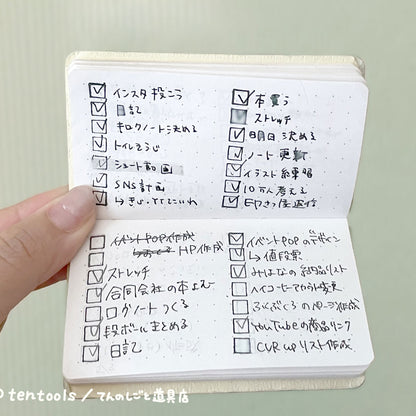 インスタ投こう
日記
キロクノート決める
トイレそうじ
シュート計画
SNS計画
本買う
ストレッチ
明日決める
ノート更新
イラスト練習
10万人考える
イベントPOP作成
HP作成
ストレッチ
合同会社の本よむ
ロガノートつくる
段ボールまとめる
日記
イベントPOPのデザイン
↳値段票
みはなの納品リスト
ふくぶくろのページ作成
YouTubeの商品リンク
CVR upリスト作成
©tentools/てんのしごと道具店